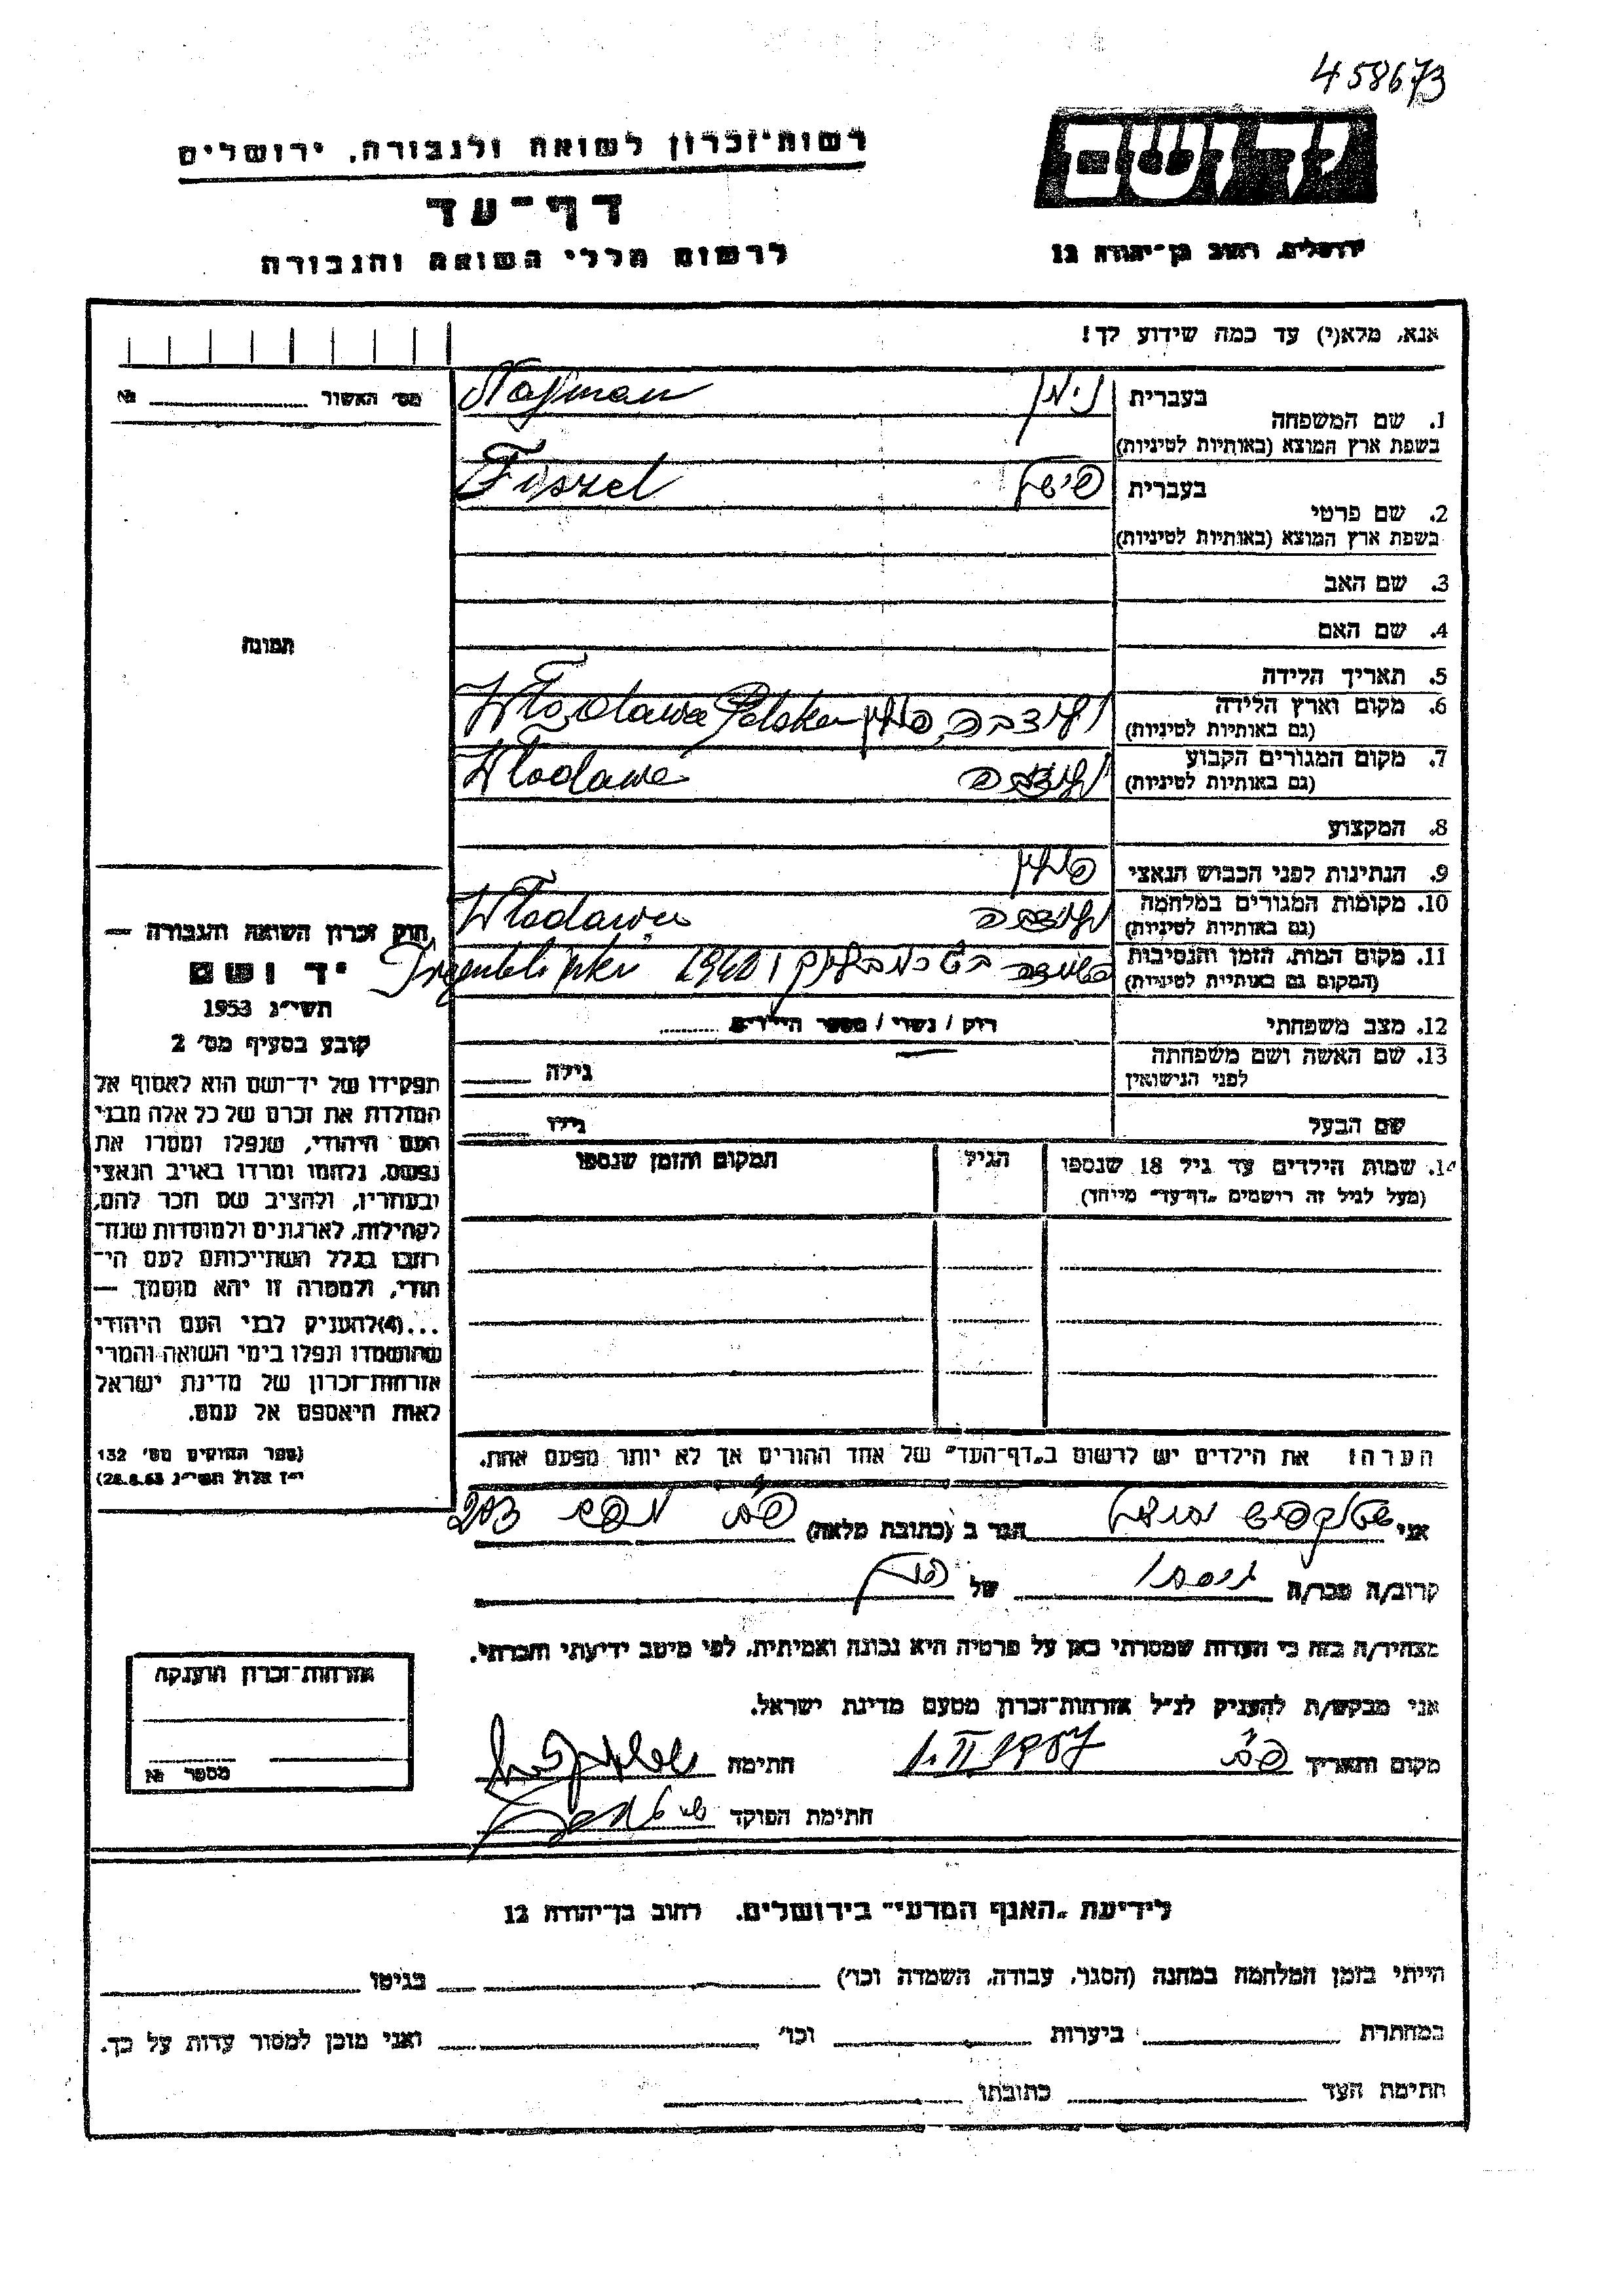 458673
יד ושם
ירושלים, רחוב בן־יהודה 12
רשות־זכרון לשואה ולגבורה, ירושלים
דף־עד
לרשום חללי השואה והגבורה
אנא, מלא(י) עד כמה שידוע לך!
מס׳ האשור № 
1. שם המשפחה בעברית נימן Najman
בשפת ארץ המוצא (באותיות לטיניות)
2. שם פרטי בעברית פישל Fiszel
בשפת ארץ המוצא (באותיות לטיניות)
3. שם האב
4. שם האם
תמונה
5. תאריך הלידה
6. מקום וארץ הלידה ולודבה, פולין Włodawa Polska
(גם באותיות לטיניות)
7. מקום המגורים הקבוע Włodawa
(גם באותיות לטיניות)
8. המקצוע
9. הנתינות לפני הכבוש הנאצי פולין
10. מקומות המגורים במלחמה Włodawa
(גם באותיות לטיניות)
11. מקום המות, הזמן והנסיבות
(המקום גם באותיות לטיניות)
12. מצב משפחתי רוק / נשוי / מספר הילדים
13. שם האשה ושם משפחתה גילה
לפני הנישואין
שם הבעל גילו
14. שמות הילדים עד גיל 18 שנספו הגיל המקום והזמן שנספו
(מעל לגיל זה רושמים „דף־עד״ מיוחד)
הערה: את הילדים יש לרשום ב„דף־העד״ של אחד ההורים אך לא יותר מפעם אחת.
חוק זכרון השואה והגבורה —
יד ושם
תשי״ג 1953
קובע בסעיף מס׳ 2
תפקידו של יד־ושם הוא לאסוף אל
המולדת את זכרם של כל אלה מבני
העם היהודי, שנפלו ומסרו את
נפשם, נלחמו ומרדו באויב הנאצי
ובעוזריו, ולהציב שם וזכר להם,
לקהילות, לארגונים ולמוסדות שנח־
רבו בגלל השתייכותם לעם הי־
הודי, ולמטרה זו יהא מוסמך —
...(4)להעניק לבני העם היהודי
שהושמדו ונפלו בימי השואה והמרי
אזרחות־זכרון של מדינת ישראל
לאות היאספם אל עמם.
(ספר החוקים מס׳ 132
י״ז אלול תשי״ג 28.8.53)
אני הגר ב (כתובת מלאה)
קרוב/ה מכר/ה של
מצהיר/ה בזה כי העדות שמסרתי כאן על פרטיה היא נכונה ואמיתית, לפי מיטב ידיעתי והכרתי.
אני מבקש/ת להעניק לנ״ל אזרחות־זכרון מטעם מדינת ישראל.
מקום ותאריך 1.II 1957 חתימה
חתימת הפוקד
אזרחות־זכרון הוענקה
מספר №
לידיעת „האגף המדעי״ בירושלים. רחוב בן־יהודה 12
הייתי בזמן המלחמה במחנה (הסגר, עבודה, השמדה וכו׳) בגיטו
במחתרת ביערות וכו׳ ואני מוכן למסור עדות על כך.
חתימת העד כתובתו